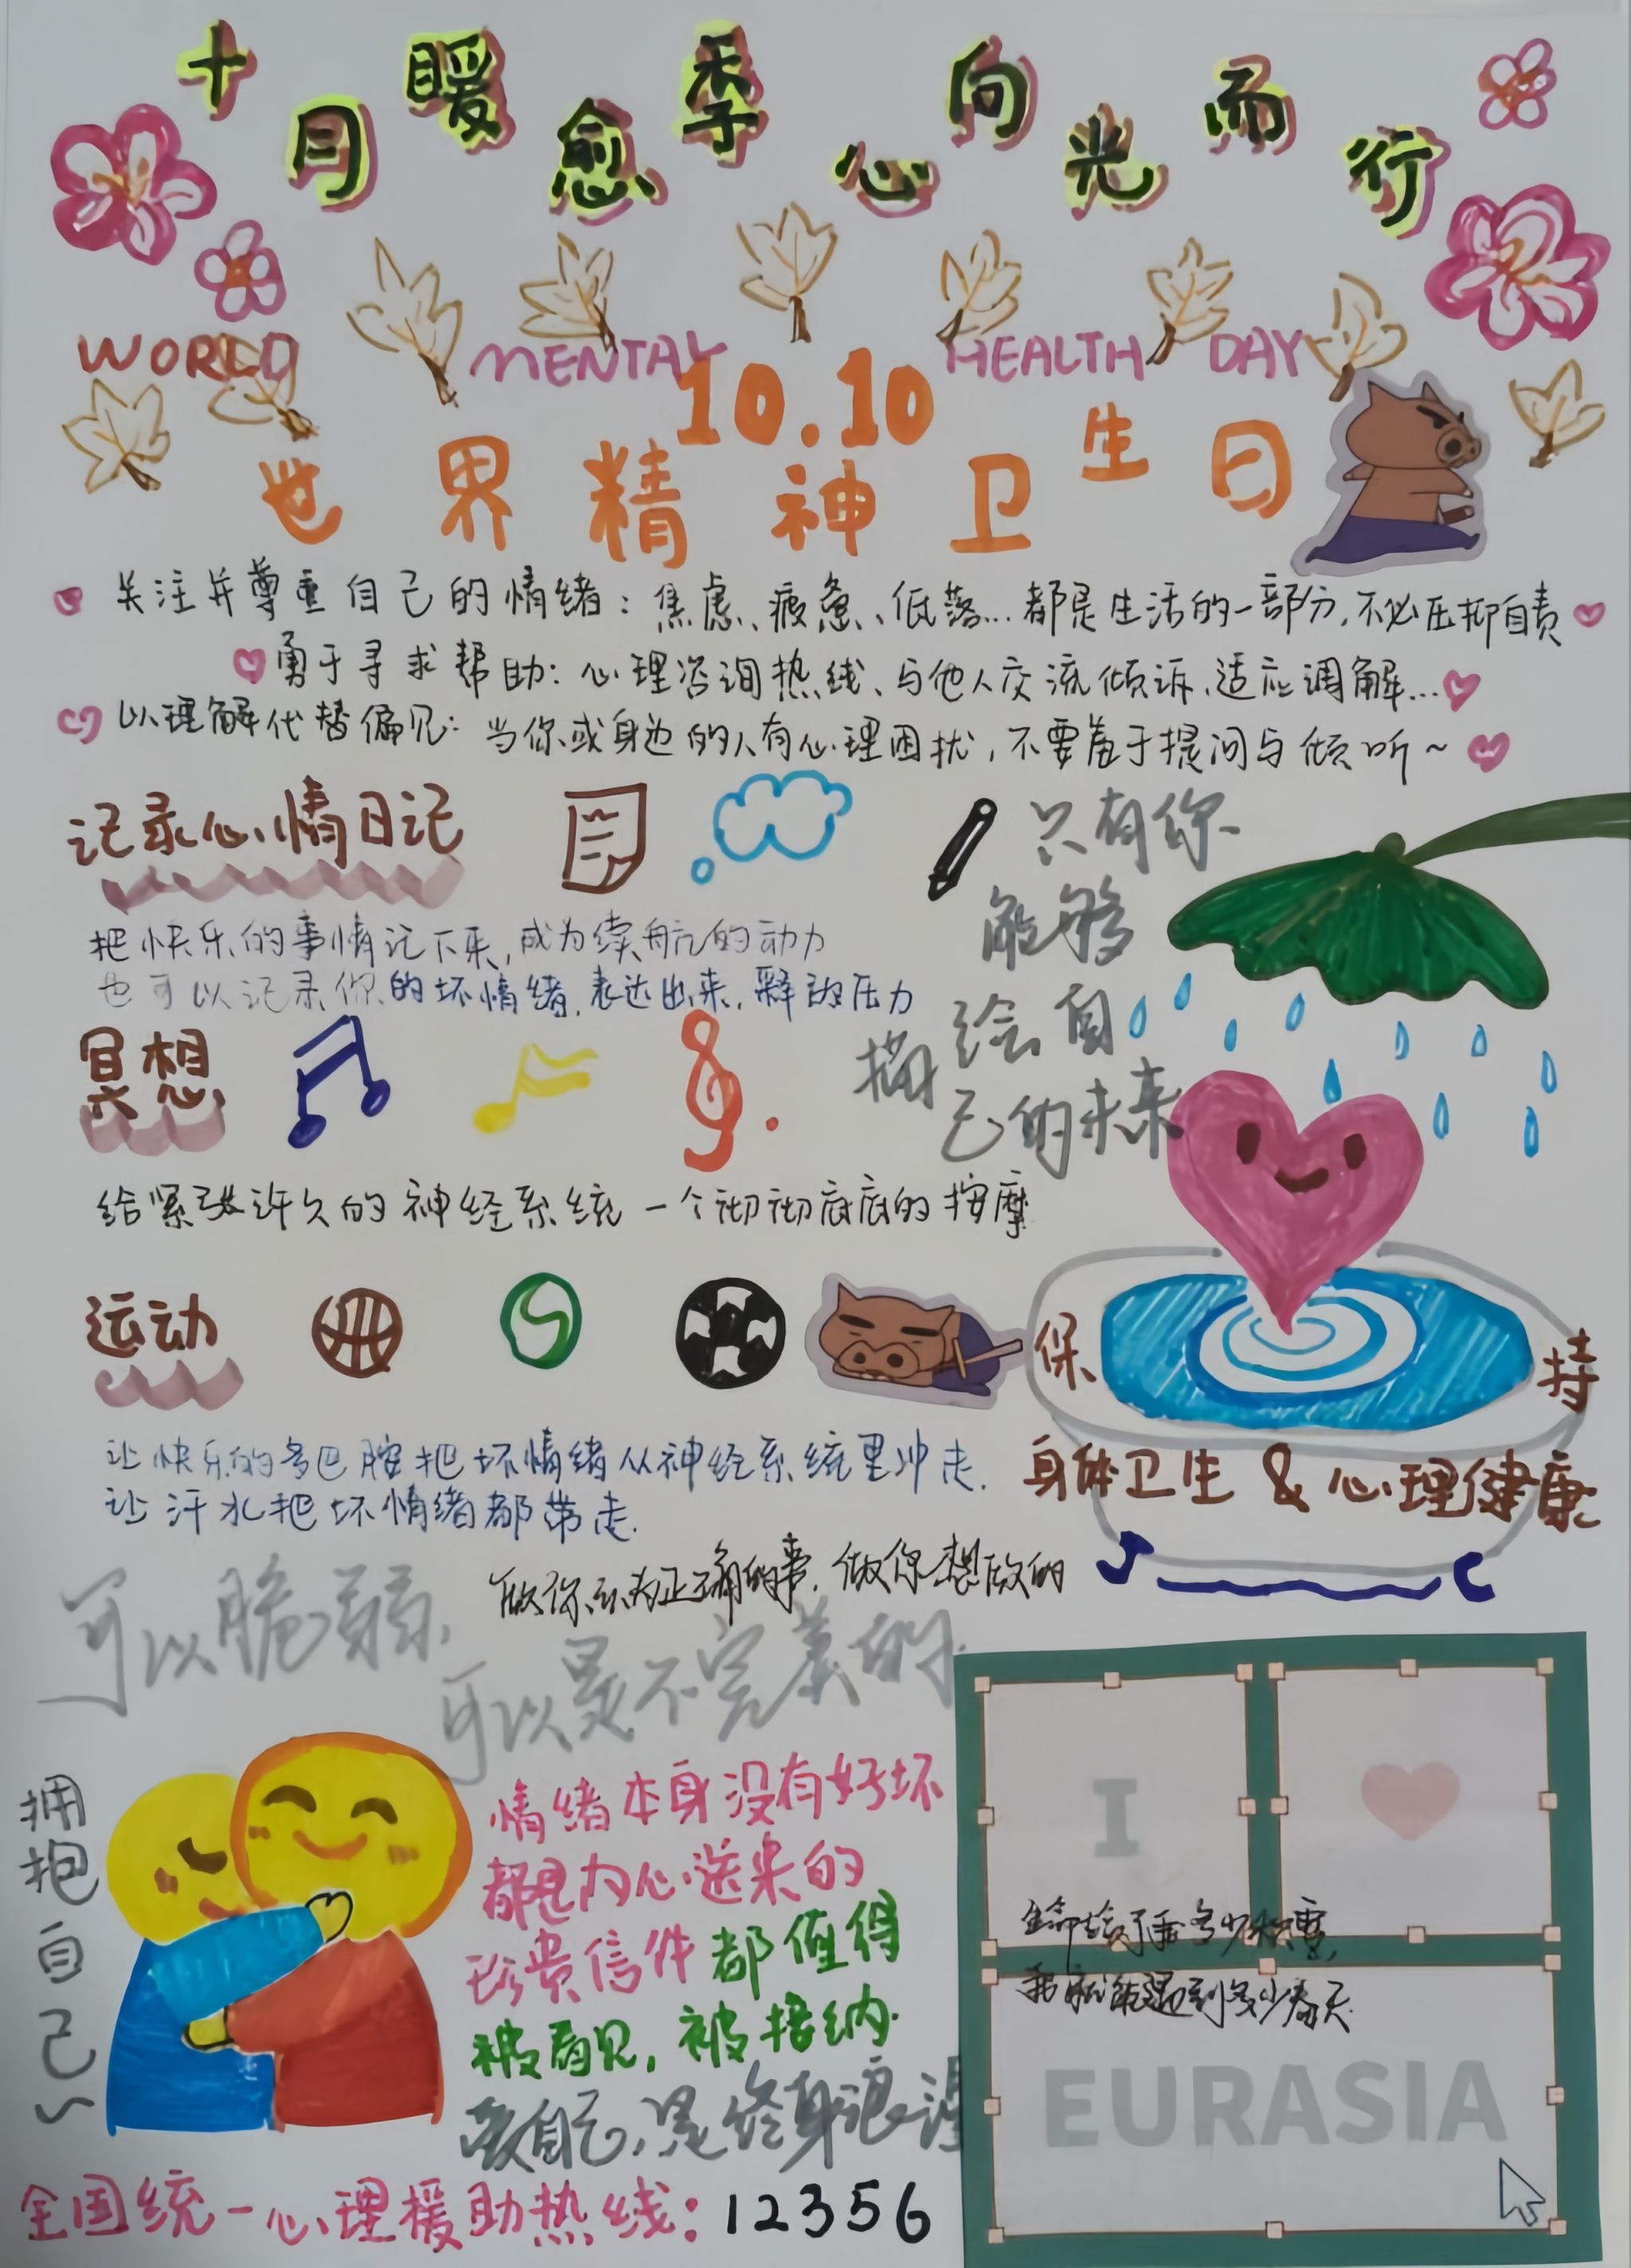 十月暖愈季 心向光而行
WORLD MENTAL HEALTH DAY
10.10
世界精神卫生日
关注并尊重自己的情绪：焦虑、疲惫、低落...都是生活的一部分,不必压抑自责
勇于寻求帮助：心理咨询热线、与他人交流倾诉、适应调解...
以理解代替偏见：当你或身边的人有心理困扰，不要羞于提问与倾听~
记录心情日记
把快乐的事情记下来,成为续航的动力
也可以记录你的坏情绪,表达出来,释放压力
只有你
能够
描绘自
己的未来
冥想
给紧张许久的神经系统一个彻彻底底的按摩
运动
让快乐的多巴胺把坏情绪从神经系统里冲走.
让汗水把坏情绪都带走.
保持
身体卫生 & 心理健康
做你认为正确的事,做你想做的
可以脆弱,
可以是不完美的.
拥抱自己~
情绪本身没有好坏
都是内心送来的
珍贵信件都值得
被看见,被接纳.
爱自己,是终身浪漫
I
生命给了我多少积雪,
我就能遇到多少春天
EURASIA
全国统一心理援助热线：12356